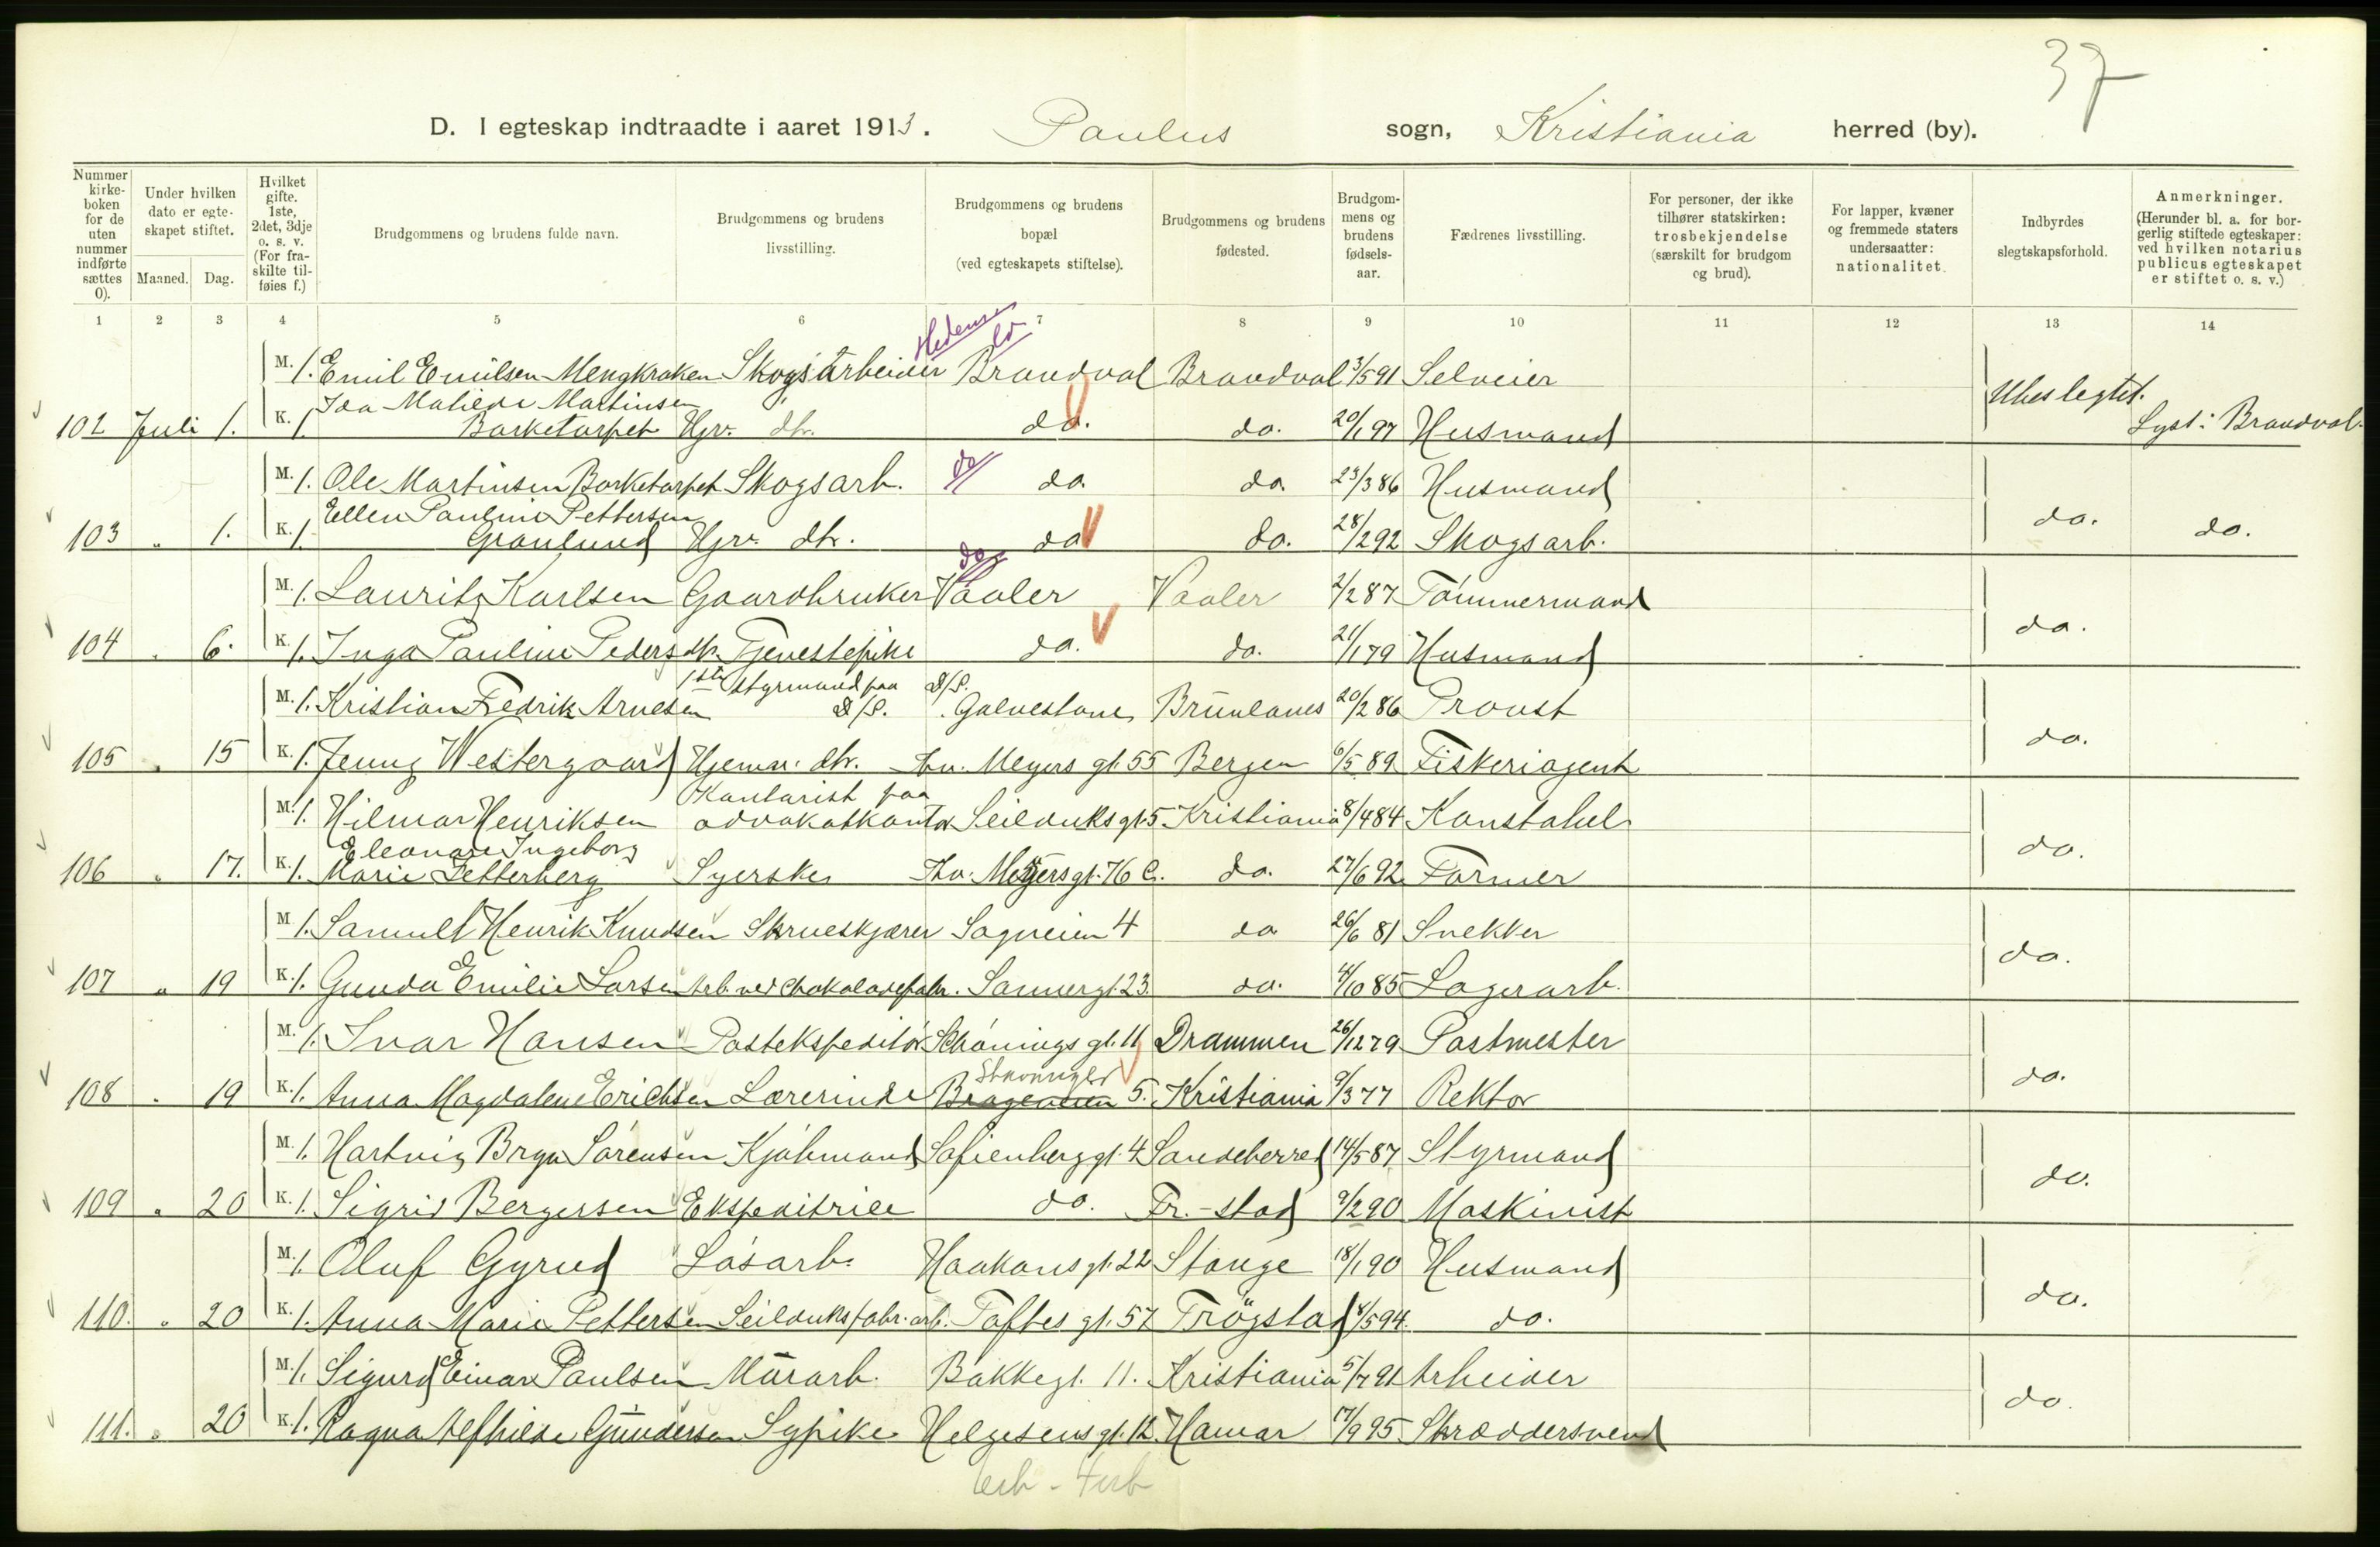 37
D. I egteskap indtraadte i aaret 1913. Paulus sogn, Kristiania herred (by).
Nummer kirke-boken for de uten nummer indførte sættes 0). Under hvilken dato er egte-skapet stiftet. Maaned. Dag. Hvilket gifte. 1ste, 2det, 3dje o. s. v. (For fra-skilte til-føies f.) Brudgommens og brudens fulde navn. Brudgommens og brudens livsstilling. Brudgommens og brudens bopæl (ved egteskapets stiftelse). Brudgommens og brudens fødested. Brudgom-mens og brudens fødsels-aar. Fædrenes livsstilling. For personer, der ikke tilhører statskirken: trosbekjendelse (særskilt for brudgom og brud). For lapper, kvæner og fremmede staters undersaatter: nationalitet. Indbyrdes slegtskapsforhold. Anmerkninger. (Herunder bl. a. for bor-gerlig stiftede egteskaper: ved hvilken notarius publicus egteskapet er stiftet o. s. v.)
1 2 3 4 5 6 7 8 9 10 11 12 13 14
M. 1. Emil Emilsen Mengkroken Skogsarbeider Brandval Brandval 3/5 91 Selveier
Ubeslegtet.
Ida Matilde Martinsen
102 Juli 1. K. 1. Barketorpet Hjv. dtr. do. do. 20/1 97 Husmand Lyst: Brandval.
M. 1. Ole Martinsen Barketorpet Skogsarb. do do. do. 23/3 86 Husmand
Ellen Pauline Pettersen
103 " 1. K. 1. Granlund Hjv. dtr. do do. 28/2 92 Skogsarb. do. do.
M. 1. Lauritz Karlsen Gaardbruker Vaaler Vaaler 2/2 87 Tömmermand
104 " 6. K. 1. Inga Pauline Pedersdtr. Tjenestepike do. do. 21/1 79 Husmand do.
1ste Styrmand paa D/S.
M. 1. Kristian Fredrik Arnesen D/S. Galvestone Brunlanes 20/2 86 Provst
105 " 15 K. 1. Jenny Westergaard Hjemv. dtr. Thv. Meyers gt. 55 Bergen 6/5 89 Fiskeriagent do.
Kontorist paa
M. 1. Hilmar Henriksen advokatkontor Seilduksgt. 5 Kristiania 8/4 84 Konstabel
Eleonore Ingeborg
106 " 17. K. 1. Marie Fetterberg Syerske Thv. Meyersgt. 76 C. do. 27/6 92 Farmer do.
M. 1. Samuel Henrik Knudsen Skrueskjærer Sagveien 4 do 26/6 81 Snekker
107 " 19 K. 1. Gunda Emilie Larsen Arb. ved Chokoladefabr. Sannergt. 23. do. 4/10 85 Lagerarb. do.
M. 1. Ivar Hansen Postekspeditör Schönings gt. 11 Drammen 26/12 79 Postmester
108 " 19 K. 1. Anna Magdalene Erichsen Lærerinde Brageveien 5. Kristiania 9/3 77 Rektor do.
M. 1. Hartvig Bryn Sörensen Kjöbmand Sofienberggt. 4 Sandeherred 14/5 87 Styrmand
109 " 20 K. 1. Sigrid Bergersen Ekspeditrice do. Fr.-stad 9/2 90 Maskinist do.
M. 1. Oluf Gyrud Lösarb. Haakonsgt. 22 Stange 18/1 90 Husmand
110. " 20 K. 1. Anna Marie Pettersen Seilduksfabr. arb. Toftes gt. 57 Trögstad 4/5 94. do. do.
M. 1. Sigurd Einar Paulsen Murarb. Bakkegt. 11. Kristiania 5/7 91 Arbeider
111. " 20 K. 1. Ragna Alfhilde Gundersen Sypike Helgesensgt. 12. Hamar 17/9 95 Skræddersvend do.